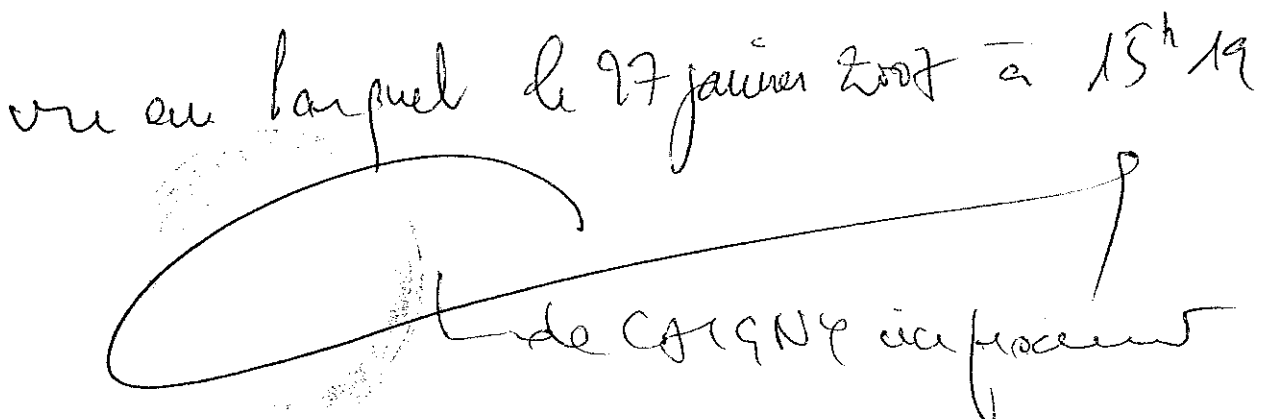 vu au Parquet le 27 janvier 2007 à 15h19
de CAIGNY vice procureur